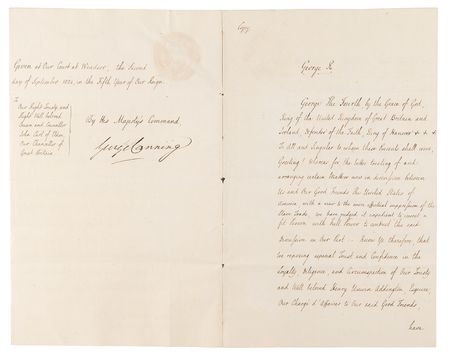 Given at Our Court at Windsor, the Second
day of September 1824, in the Fifth Year of Our Reign.
To
Our Right Trusty and
Right Well beloved
Cousin and Councillor
John Earl of Eldon
Our Chancellor of
Great Britain
By His Majesty's Command
George Canning
Copy
George R
George the Fourth by the Grace of God,
King of the United Kingdom of Great Britain and
Ireland, Defender of the Faith, King of Hanover & & &
To All and Singular to whom these Presents shall come,
Greeting! Whereas for the better treating of and
arranging certain Matters now in discussion between
Us and Our Good Friends the United States of
America, with a view to the more effectual suppression of the
Slave Trade, We have judged it expedient to invest a
fit Person with full Power to conduct the said
Discussion on Our Part – Know Ye therefore, that
We reposing especial Trust and Confidence in the
Loyalty, Diligence, and Circumspection of Our Trusty
and Well beloved Henry Unwin Addington Esquire,
Our Chargé d'Affaires to Our said Good Friends,
have